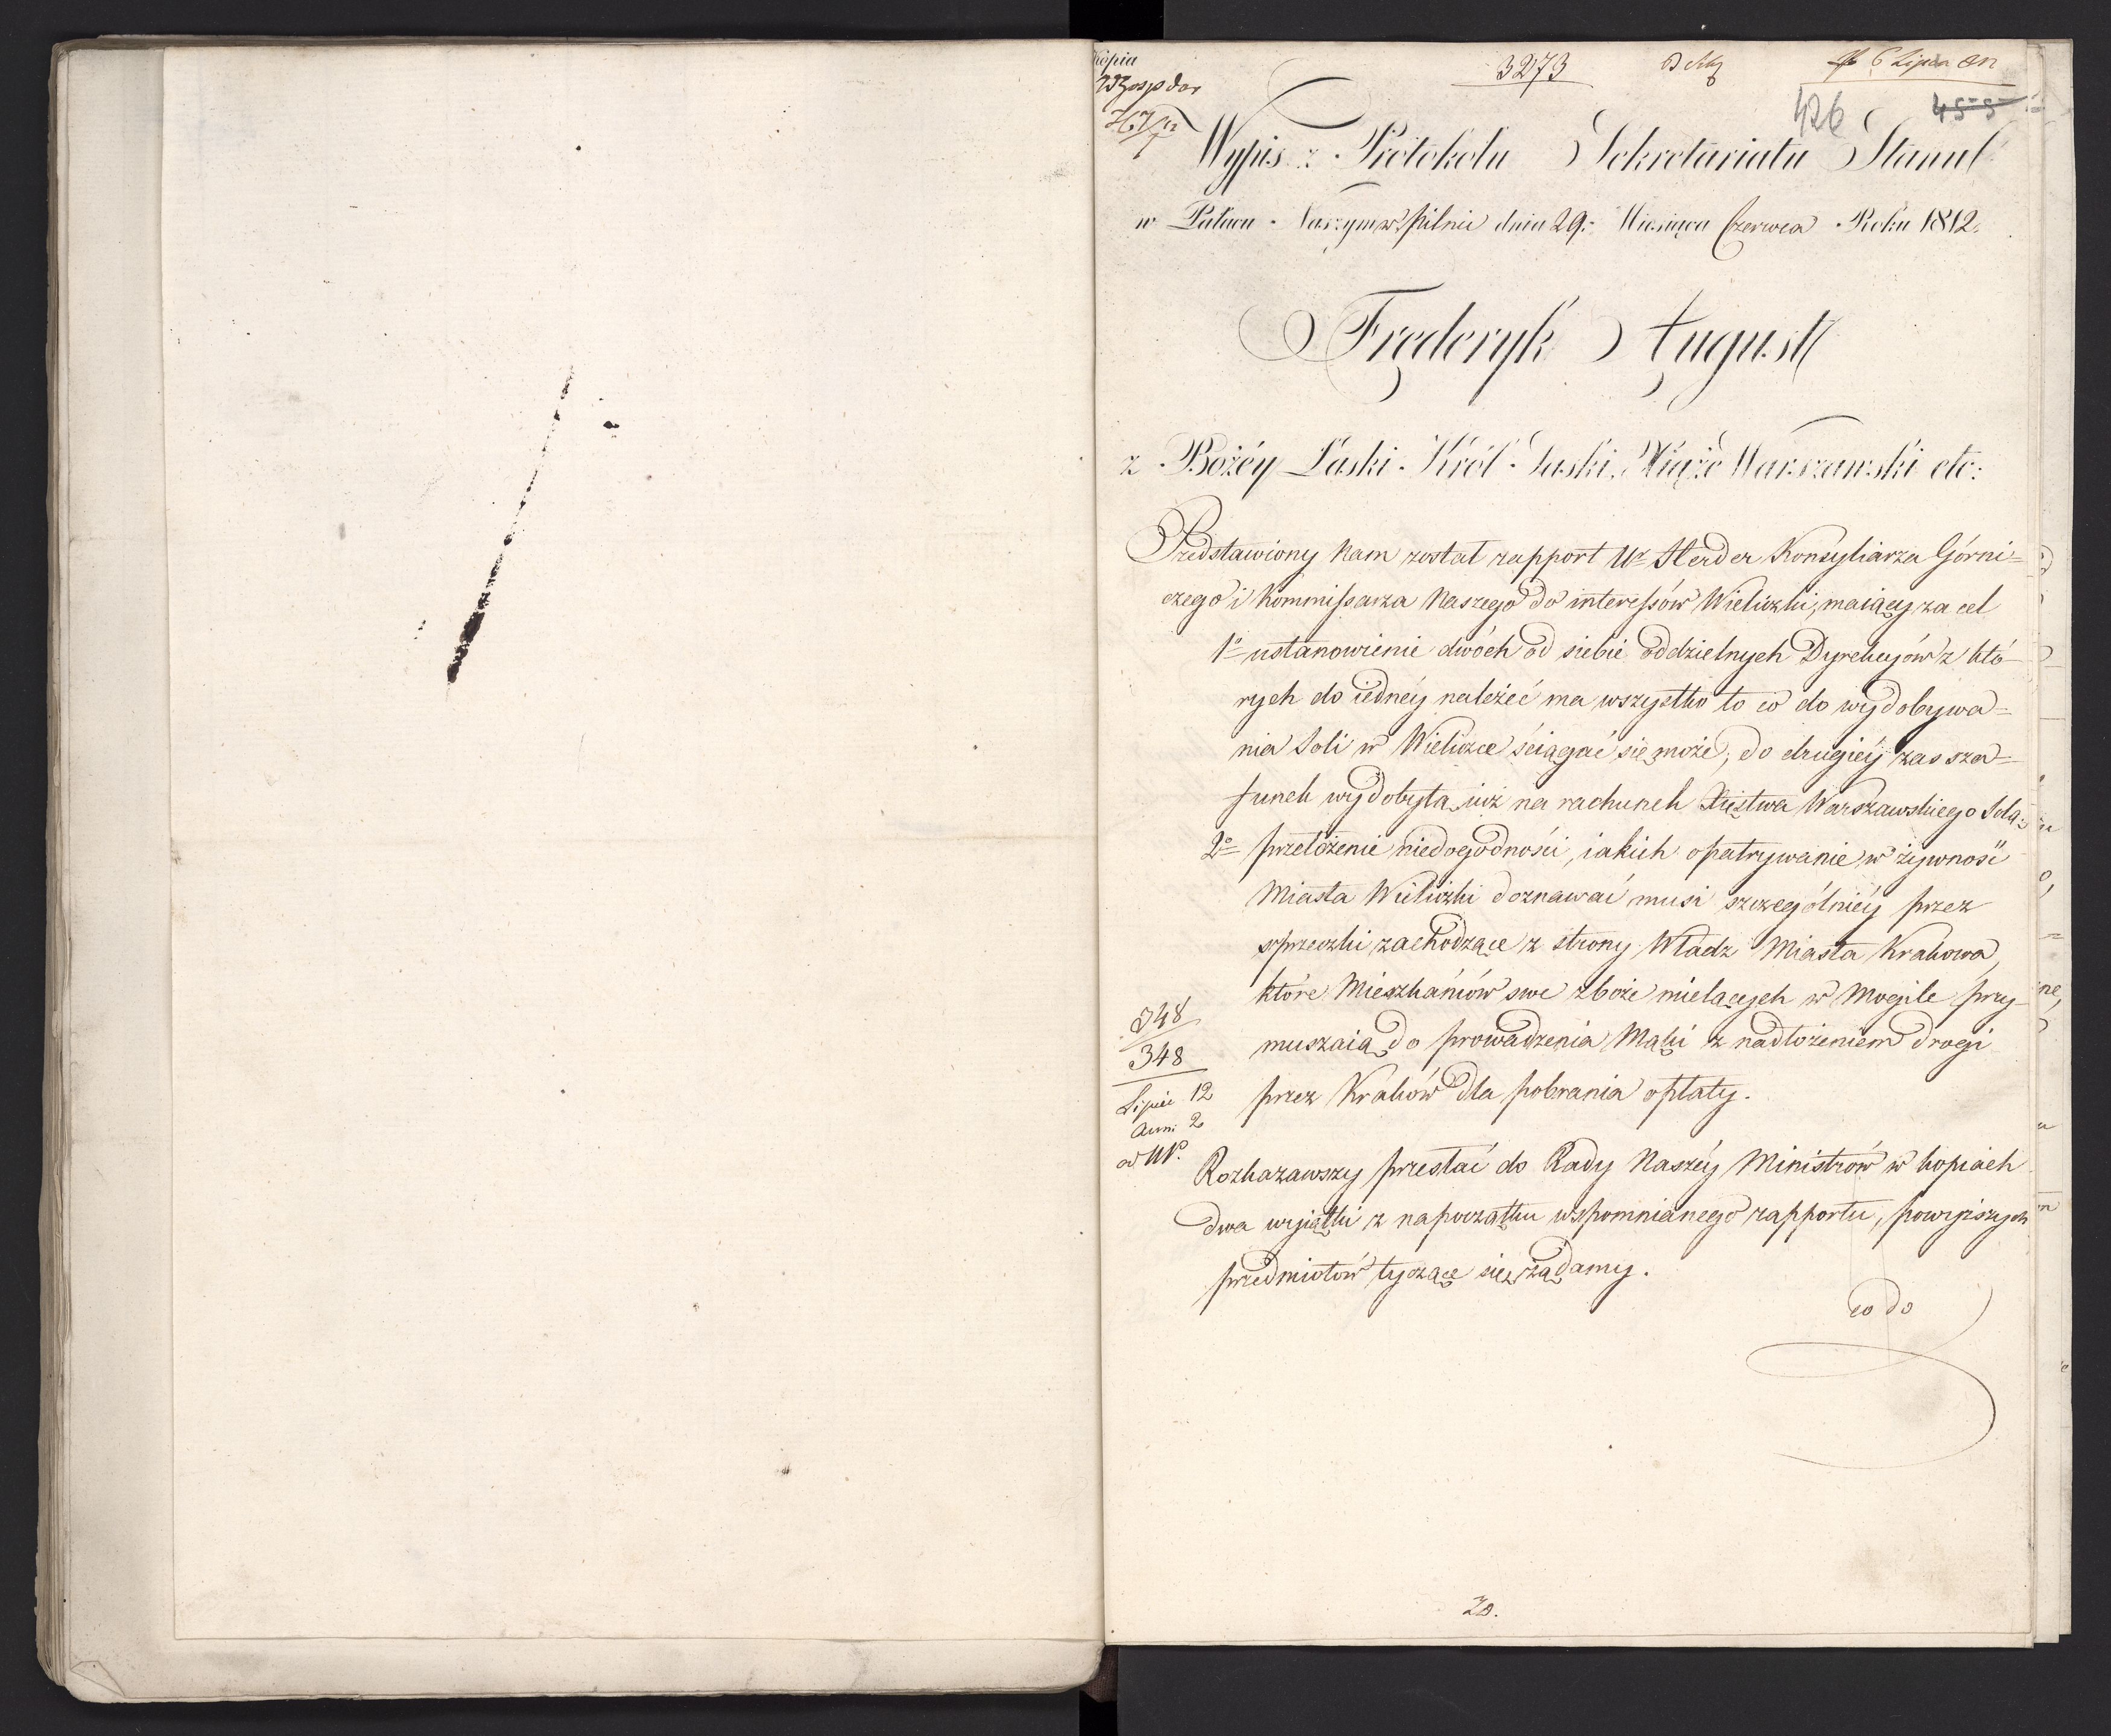 Kopia
3273
6 Lipca
426
455
Wypis z Protokołu Sekretariatu Stanu
w Pałacu Naszym w Pilnic dnia 29. Miesiąca Czerwca Roku 1812.
Fręderyk August
z Bożéy Łaski Król Saski, Xiąże Warszawski etc:
Przedstawiony Nam został rapport Ur Herder Konsyliarza Górni=
czego i Kommissarza Naszego do interessów Wieliczki, maiący za cel
1o ustanowienie dwóch od siebie oddzielnych Dyrekcyów z któ=
rych do iednéy należeć ma wszystko to co do wydobywa=
nia Soli w Wieliczce ściągać się może, do drugiéy zas sza=
funek wydobytą iuż na rachunek Xięstwa Warszawskiego Solą:
2o przełożenie niedogodności, iakich opatrywanie w żywność
Miasta Wieliczki doznawać musi szczególniéy przez
sprzeczki zachodzące z strony Władz Miasta Krakowa,
które Mieszkańców swe zboże mielących w Mogile przy=
muszaią do prowadzenia Mąki z nadłożeniem drogi
przez Kraków dla pobrania opłaty.
348
348
Lipiec 12
Rozkazawszy przesłać do Rady Naszéy Ministrów w kopiach
dwa wyiątki z napoczątku wspomnianego rapportu, powyższych
przedmiotów tyczące się, żądamy.
co do